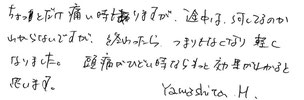 ちょっとだけ痛い時もありますが、途中は、何してるのか
わからないですが、終わったら、つまりもなくなり軽く
なりました。頭痛がひどい時ならもっと効果がわかると
思います。
Yamashita H.